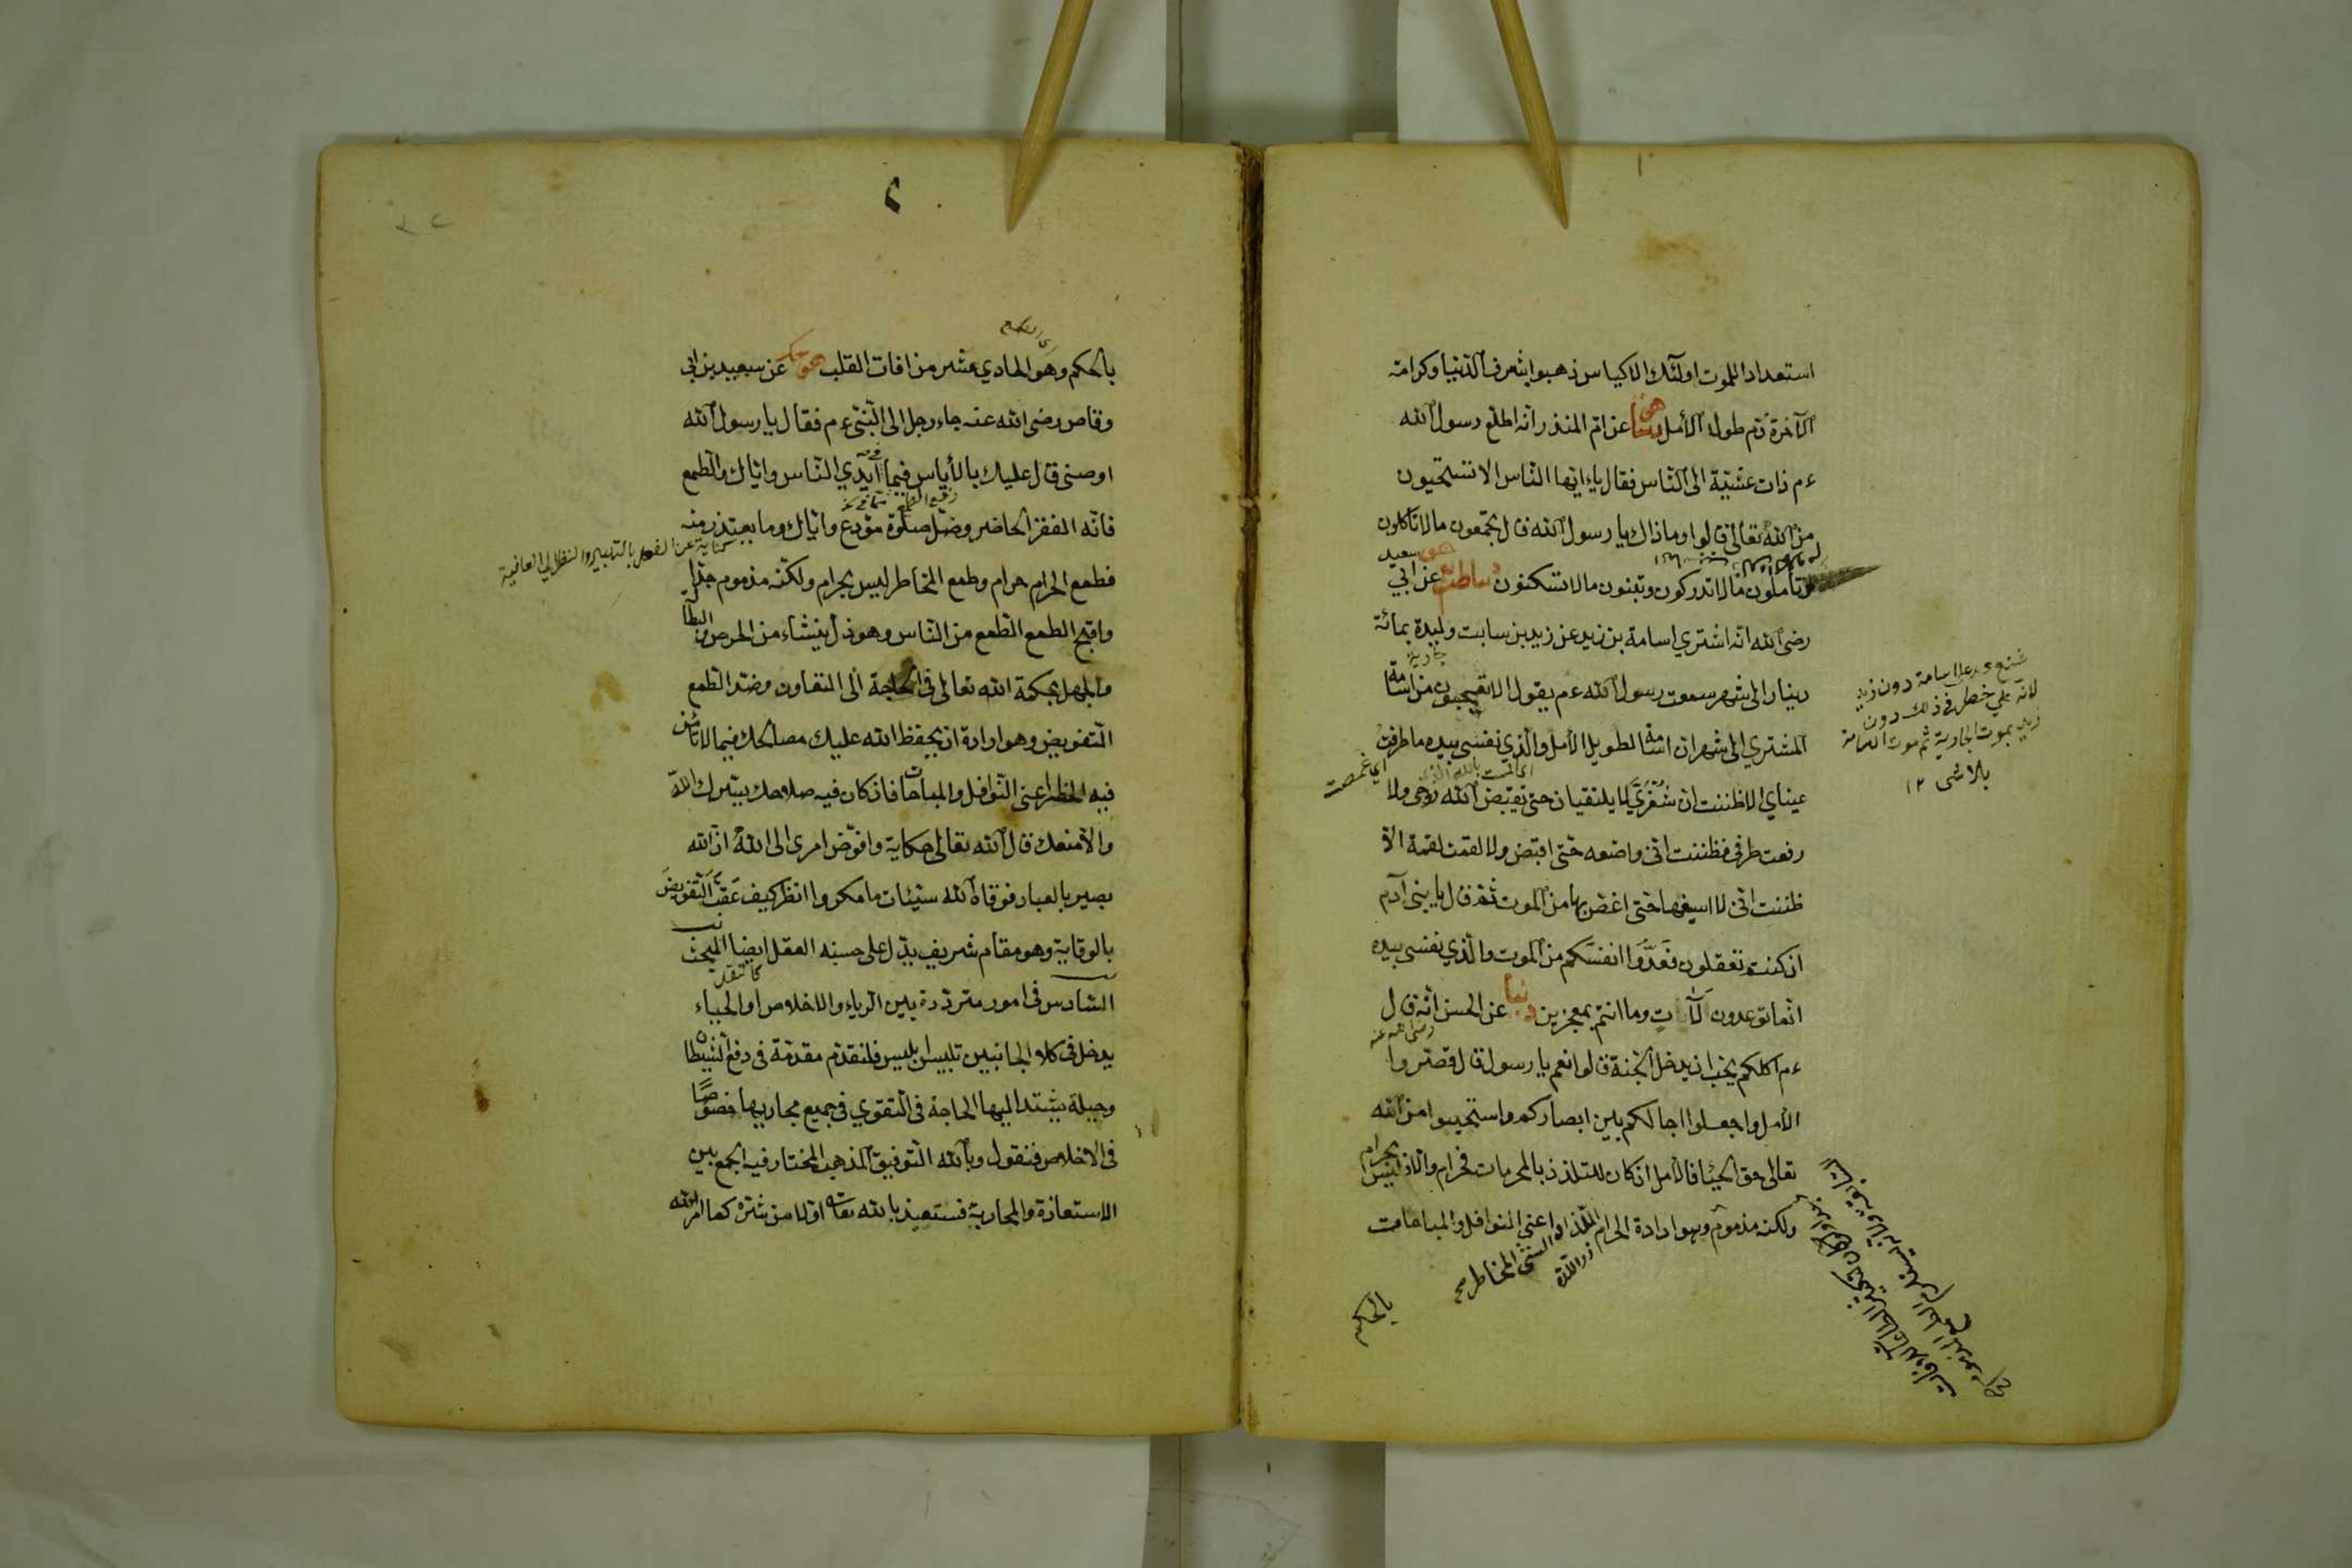 استعدادا للموت اولئك الاكياس ذهبوا بشرف الدنيا وكرامة
الآخرة ذم طول الأمل عن ام المنذر انه اطلع رسول الله
ءم ذات عشيّة الى النّاس فقال يا ايّها النّاس الا تستحيون
من الله تعالى قالوا وما ذاك يا رسول الله قال تجمعون مالا تاكلون
وتأملون مالا تدركون وتبنون مالا تسكنون عن ابي سعيد
رضى الله انّه اشتري اسامة بن زيد عن زيد بن سابت وليدة بمائة
دينار الى شهر سمعت رسول الله ءم يقول الا تعجبون من اسامة
المشتري الى شهر ان اسامة لطويل الأمل والّذي نفسى بيده ما طرفت
عيناي الا ظننت ان شُفْرَيَّ لا يلتقيان حتى يقبض الله روحى ولا
رفعت طرفى فظننت انّى واضعه حتى اقبض ولا لقمت لقمة الّا
ظننت انّى لا اسيغها حتى اغص بها من الموت ثم قال يا بنى آدم
ان كنتم تعقلون فَعُدّوا انفسكم من الموت والّذي نفسى بيده
انّما توعدون لَآتٍ وما انتم بمعجزين دنيا عن الحسن انّه قال
ءم اكلكم يحب ان يدخل الجنة قالوا نعم يا رسول قال قصّروا
الأمل واجعلوا اجالكم بين ابصاركم واستحيوا من الله
تعالى حق الحياء فالأمل ان كان للتلذذ بالمحرمات فحرام والا فليس بحرام
ولكنه مذموم وهو ارادة الحرام اعنى النوافل والمباحات
بالحكم
شنع على اسامة دون زيد
لانه على خطر فى ذلك دون
زيد بموت الجارية ثم موت اسامة
بلا شى ١٢
اي غمضت
بالحكم وهو الحادي عشر من افات القلب عن سعيد بن ابى
وقاص رضى الله عنه جاء رجل الى النّبىّ ءم فقال يا رسول الله
اوصنى قال عليك بالأياس فيما فى أيدي النّاس وايّاك والطمع
فانّه الفقر الحاضر وصلّ صلوة مودّع وايّاك وما يعتذر منه
فطمع الحرام حرام وطمع المخاطر ليس بحرام ولكنّه مذموم جدّا
واقبح الطمع الطمع من النّاس وهو ذلّ ينشاء من الحرص والبطالة
والجهل بحكمة الله تعالى فى الحاجة الى التعاون وضد الطمع
التفويض وهو ارادة ان يحفظ الله عليك مصالحك فيما لا تأمن
فيه الخطر اعنى النّوافل والمباحات فان كان فيه صلاحك يسّرك الله
والا منعك قال الله تعالى حكاية وافوّض امرى الى الله ان الله
بصير بالعباد فوقاه الله سيّئات ما مكروا انظر كيف عَقّب التفويضَ
بالوقاية وهو مقام شريف يدّل على حسنه العقل ايضا المبحث
السّادس فى امور متردّدة بين الرّياء والاخلاص او الحياء
يدخل فى كلا الجانبين تلبيس ابليس فلنقدّم مقدّمة فى دفع الشيطان
وحيلة يشتد اليها الحاجة فى التقوي فى جميع مجاريها خصوصًا
فى الاخلاص فنقول وبالله التوفيق المذهب المختار فيه الجمع بين
الاستعاذة والمحاربة فنستعيذ بالله تعالى اوّلا من شرّه كما امر الله